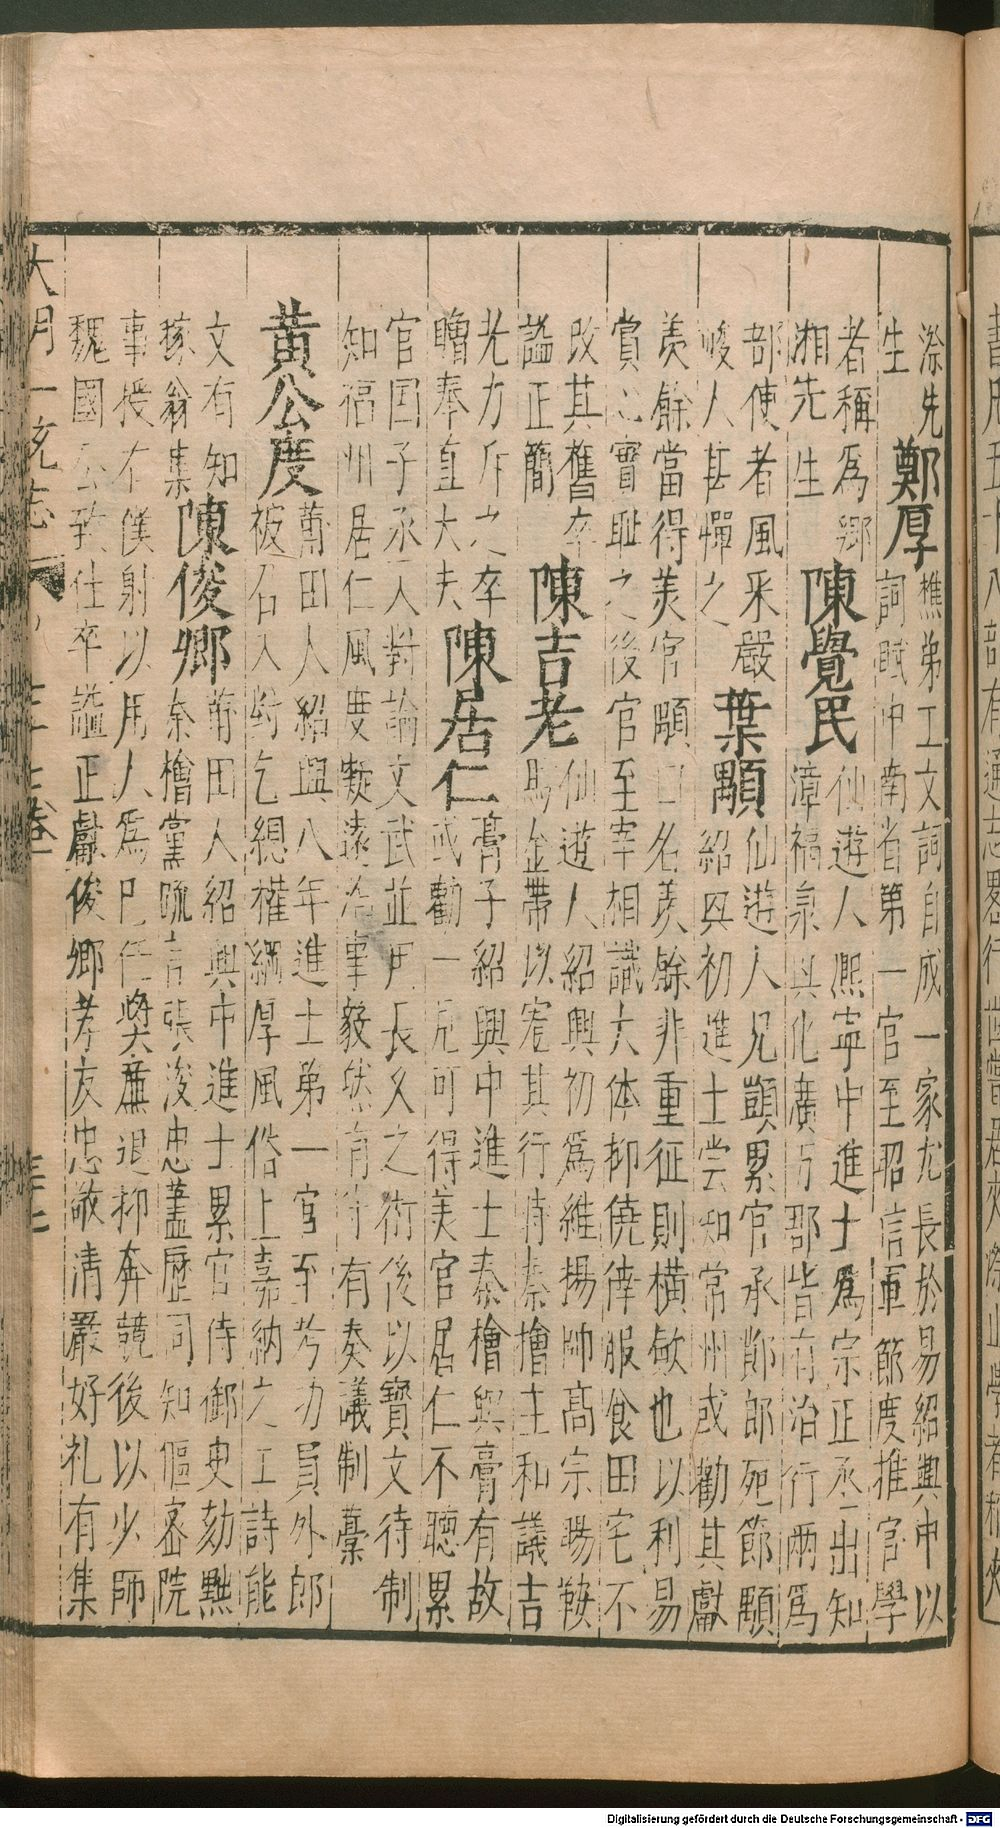 漈先
生
鄭厚
樵弟工文詞自成一家尤長於易紹興中以
詞賦冲南省第一官至昭信軍節度推官學
者稱爲鄉
湘先生
陳覺民
仙遊人熈寧中進士爲宗正丞出知
漳福泉與化廣五郡皆有治行兩爲
部使者風采嚴
峻人甚憚之
葉顒
仙遊人兄顗累官承郎郎死節顒
紹興初進士尝知常州或勸其獻
羡餘當得美官顒曰名羨餘非重征則橫歛也以利易
賞之實耻之後官至宰相識大体抑僥倖服食田宅不
改其舊卒
謚正簡
陳吉老
仙遊人紹興初爲維揚帥高宗賜鞍
馬金帶以寵其行時秦檜主和議吉
老力斥之卒
贈奉直大夫
陳居仁
膏子紹興中進士秦檜與膏有故
或勸一見可得美官居仁不聽累
官国子丞入對論文武並用長久之術後以寶文待制
知福州居仁風度凝遠治事毅然有守有奏議制藁
黃公度
莆田人紹興八年進士弟一官至考功員外郎
被召入對乞總權綱厚風俗上嘉納之工詩能
文有知
稼翁集
陳俊卿
莆田人紹興中進士累官侍御史劾黜
秦檜黨疏言張浚忠藎歷同知樞密院
事授右僕射以用人爲己任奬廉退抑奔競後以少師
魏國公致仕卒謚正獻俊卿孝友忠敬清嚴好礼有集
大明一统志
七十七卷